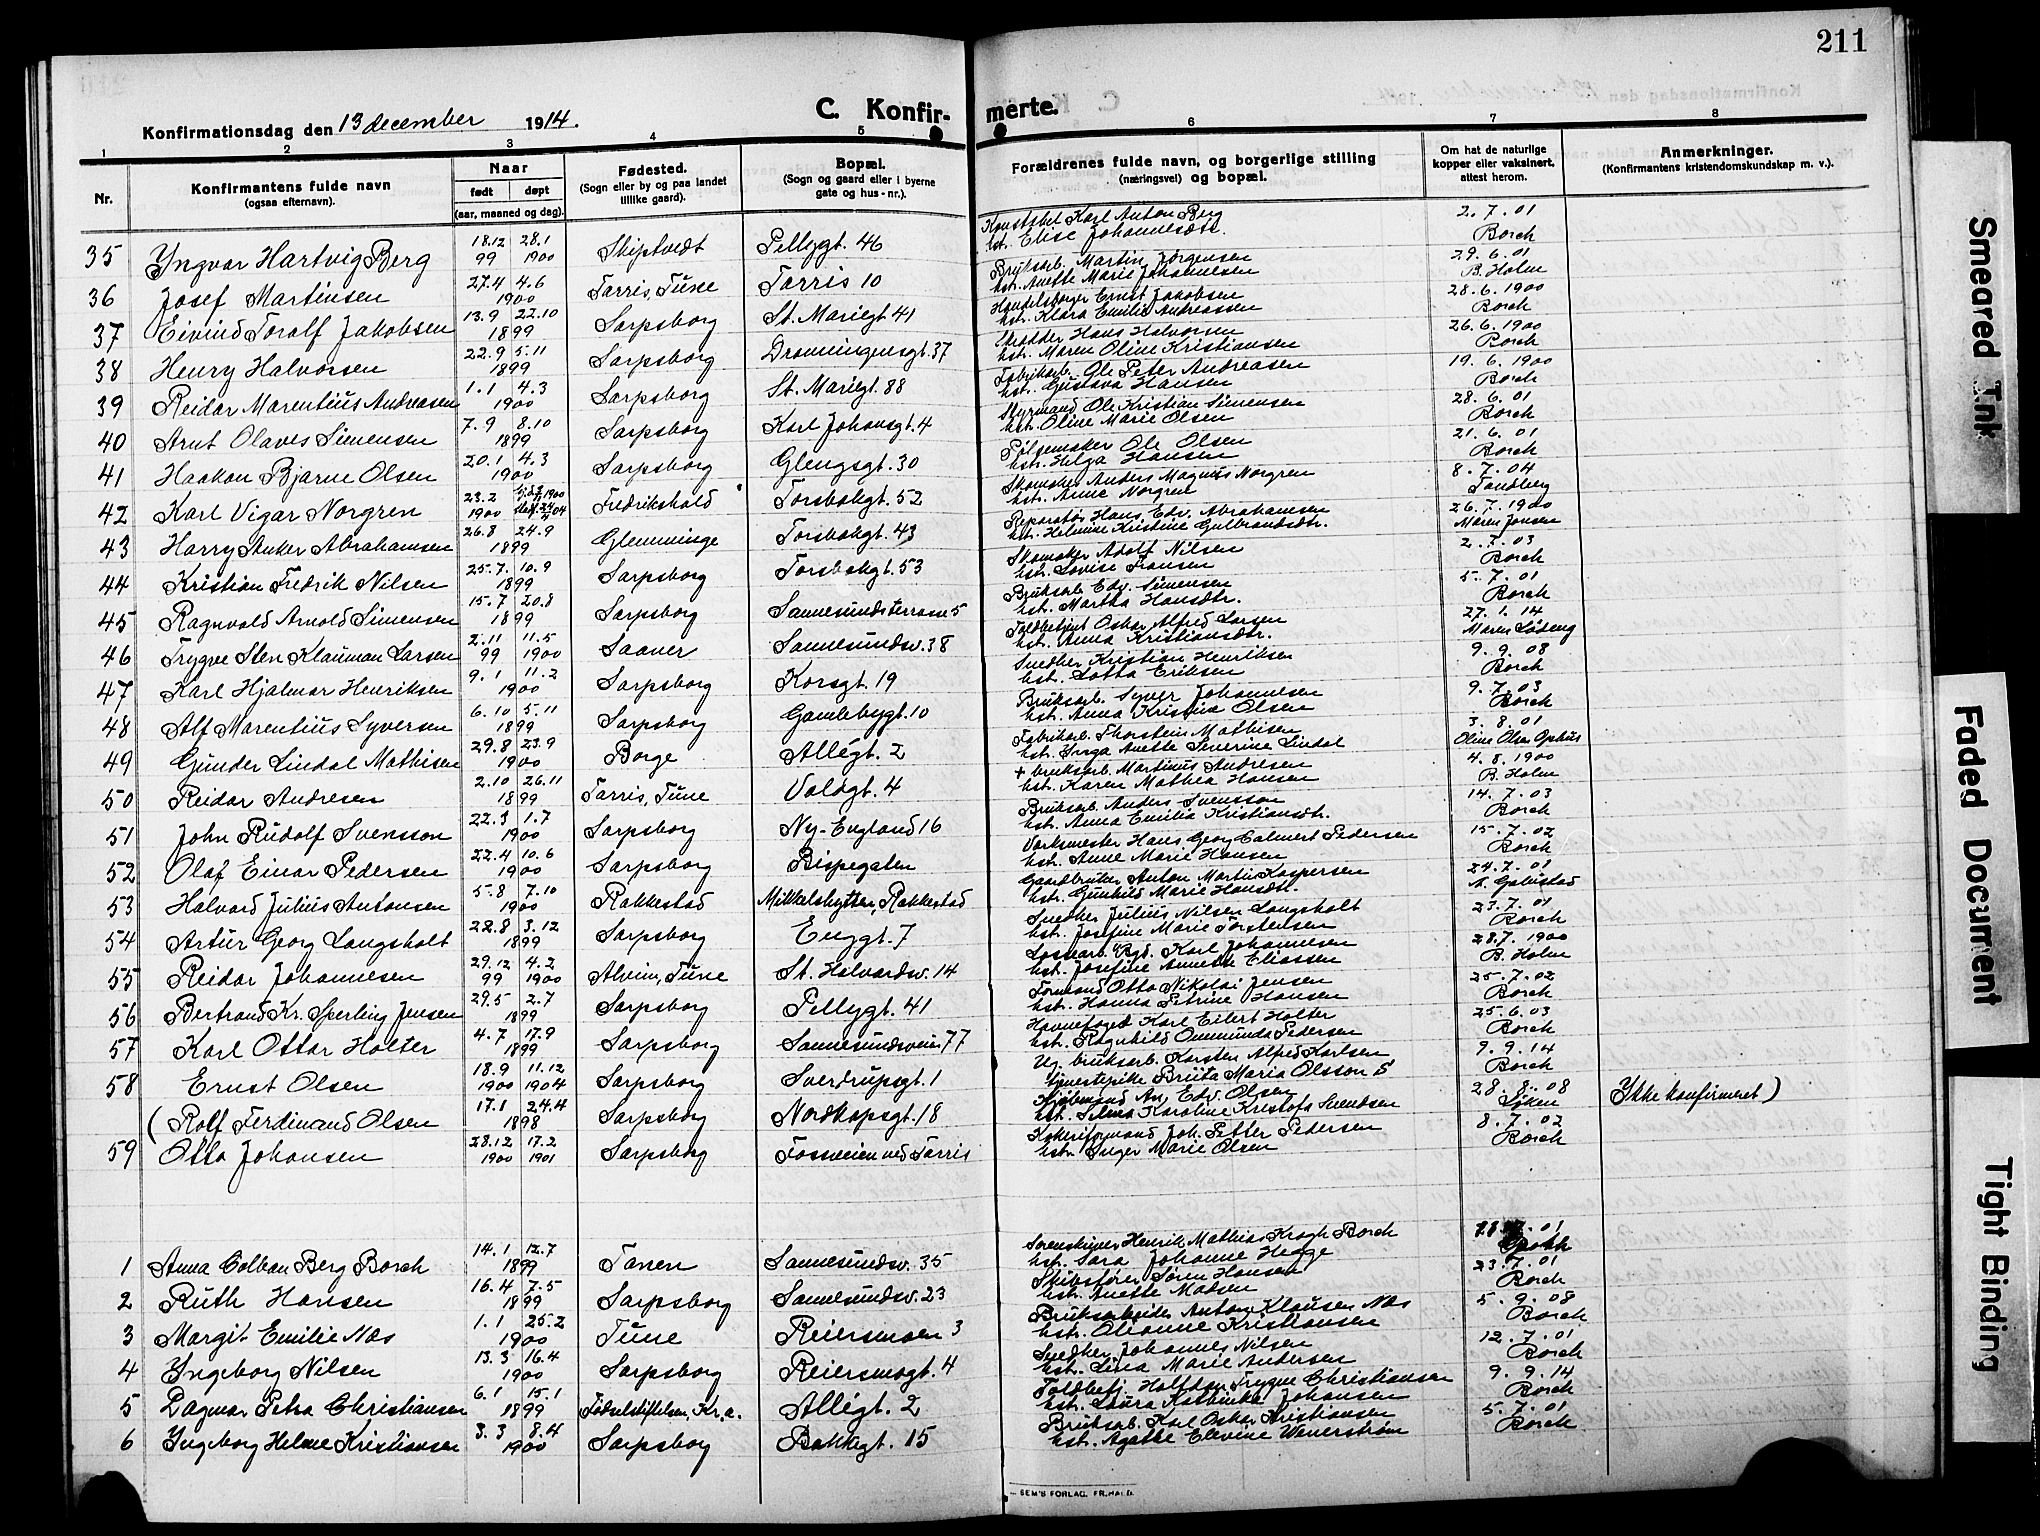 211
Konfirmationsdag den 13 december 1914.
C. Konfir-
merte.
1 2 3 4 5 6 7 8
Nr.
Konfirmantens fulde navn
(ogsaa efternavn).
Naar
født døpt
(aar, maaned og dag).
Fødested.
(Sogn eller by og paa landet
tillike gaard).
Bopæl.
(Sogn og gaard eller i byerne
gate og hus-nr.).
Forældrenes fulde navn, og borgerlige stilling
(næringsvei) og bopæl.
Om hat de naturlige
kopper eller vaksinert,
attest herom.
Anmerkninger.
(Konfirmantens kristendomskundskap m. v.).
35 Yngvar Hartvig Berg 18.12 99 28.1 1900 Skiptvedt Pellygt. 46 Karl Anton Berg hst. Elise Johannesdt. 2.7.01 Borch
36 Josef Martinsen 27.4 4.6 1900 Tarris, Tune Tarris 10 Bruksarb. Martin Jørgensen hst. Anette Marie Johannesen 29.6.01 B. Holm
37 Eivind Toralf Jakobsen 13.9 22.10 1899 Sarpsborg St. Mariegt. 41 Handelsborger Ernst Jakobsen hst. Klara Emilie Andreassen 28.6.1900 Borch
38 Henry Halvorsen 22.9 5.11 1899 Sarpsborg Dronningensgt. 37 Skrædder Hans Halvorsen hst. Maren Oline Kristiansen 26.6.1900 Borch
39 Reidar Marentius Andreasen 1.1 4.3 1900 Sarpsborg St. Mariegt. 88 Fabrikarb. Ole Peter Andreasen hst. Gustava Hansen 19.6.1900 Borch
40 Arnt Olaves Simensen 7.9 8.10 1899 Sarpsborg Karl Johansgt. 4 Styrmand Ole Kristian Simensen hst. Oline Marie Olsen 28.6.01 Borch
41 Haakon Bjarne Olsen 20.1 4.3 1900 Sarpsborg Glengsgt. 30 Pølsemaker Ole Olsen hst. Helga Hansen 21.6.01 Borch
42 Karl Vigar Norgren 23.2 1900 Fredrikshald Torsbekgt. 52 Skomaker Anders Magnus Norgren hst. Anne Norgren 8.7.04 Tandberg
43 Harry Anker Abrahamsen 26.8 24.9 1899 Glemminge Torsbekgt. 43 Reparatør Hans Edv. Abrahamsen hst. Helmine Kristine Gulbrandsdtr. 26.7.1900 Maren Jensen
44 Kristian Fredrik Nilsen 25.7. 10.9 1899 Sarpsborg Torsbekgt. 53 Skomaker Adolf Nilsen hst. Lovise Fransen 2.7.03 Borch
45 Ragnvald Arnold Simensen 15.7 20.8 1899 Sarpsborg Sannesundsterrasse 5 Bruksarb. Edv. Simensen hst. Martha Hansdtr. 5.7.01 Borch
46 Trygve Sten Klauman Larsen 2.11 99 11.5 1900 Saaner Sannesundsv. 38 Toldbetjent Oskar Alfred Larsen hst. Anna Kristiansdtr. 27.1.14 Maren Løbeng
47 Karl Hjalmar Henriksen 9.1 11.2 1900 Sarpsborg Korsgt. 19 Snedker Kristian Henriksen hst. Lotta Eriksen 9.9.08 Borch
48 Alf Marentius Syversen 6.10 5.11 1899 Sarpsborg Gamlebygt. 10 Bruksarb. Syver Johannesen hst. Anna Kristine Olsen 9.7.03 Borch
49 Gunder Lindal Mathisen 29.8 23.9 1900 Borge Allégt. 2 Fabrikarb. Thorstein Mathisen hst. Inga Anette Severine Lindal 3.8.01 Oline Olsen
50 Reidar Andresen 2.10 26.11 1899 Tarris, Tune Valdgt. 4 + bruksarb. Martinus Andresen hst. Karen Mathea Hansen 4.8.1900 B. Holm
51 John Rudolf Svensson 22.3 1.7 1900 Sarpsborg Ny-England 16 Bruksarb. Anders Svensson hst. Anna Emilia Kristiansdt. 14.7.03 Borch
52 Olaf Einar Pedersen 22.4 10.6 1900 Sarpsborg Bispegaten Verksmester Hans Georg Calmert Pedersen hst. Anne Marie Hansen 15.7.02 Borch
53 Halvard Julius Antonsen 5.8 7.10 1900 Rakkestad Mikkelshytten, Rakkestad Gaardbruker Anton Martin Kaspersen hst. Gunhild Marie Hansdt. 24.7.01
54 Artur Georg Langsholt 22.8 3.12 1899 Sarpsborg Enggt. 7 Snedker Julius Nilsen Langsholt hst. Josefine Marie Torstensen 23.7.01 Borch
55 Reidar Johannesen 29.12 99 4.2 1900 Alvim, Tune St. Halvardsv. 14 Lossearb. Karl Johannesen hst. Josefine Annette Eliassen 28.7.1900 B. Holm
56 Bertrand Kr. Sperling Jensen 29.5 2.7 1899 Sarpsborg Pellygt. 41 Formand Otto Nikolai Jensen hst. Hanna Petrine Hansen 25.7.02 Borch
57 Karl Ottar Holter 4.7 17.9 1899 Sarpsborg Sannesundsveien 77 Havnefoged Karl Eilert Holter hst. Ragnhild Ommunda Pedersen 25.6.03 Borch
58 Ernst Olsen 18.9 1900 11.12 1904 Sarpsborg Sverdrupsgt. 1 Ug. bruksarb. Karsten Alfred Karlsen tjenestepike Brita Maria Olsson 9.9.14 Borch
(Rolf Ferdinand Olsen 17.1 24.4 1898 Sarpsborg Nordkapsgt. 18 Edv. Olsen hst. Selma Karoline Kristofa Svendsen 28.8.08 Løken Ikke konfirmeret)
59 Otto Johansen 28.12 1900 17.2 1901 Sarpsborg Fosseveien ved Tarris Joh. Petter Pedersen hst. Inger Marie Olsen 8.7.02 Borch
1 Anna Colban Berg Borch 14.1 12.7 1899 Tanen Sannesundsv. 35 Sorenskriver Henrik Mathias Krogh Borch hst. Sara Johanne Hegge 7.01
2 Ruth Hansen 16.4 7.5 1899 Sarpsborg Sannesundsv. 23 Skibsfører Søren Hansen hst. Anette Madsen 23.7.01 Borch
3 Margit Emilie Næs 1.1 25.2 1900 Tune Reiersmoen 3 Bruksarbeider Anton Klausen Næs hst. Olianne Kristiansen 5.9.08 Borch
4 Yngeborg Nilsen 13.3 16.4 1900 Sarpsborg Reiersmogt. 4 Snedker Johannes Nilsen hst. Lina Marie Andersen 12.7.01 Borch
5 Dagmar Petra Christiansen 6.1 15.1 1899 Fødselstiftelsen, Kr.a. Allégt. 2 Toldbetj. Halfdan Trygve Christiansen hst. Laura Kathinka Johansen 9.9.14 Borch
6 Yngeborg Helene Kristiansen 3.3 8.4 1900 Sarpsborg Bakkegt. 15 Bruksarb. Karl Oskar Kristiansen hst. Agathe Elevine Wenerstrøm 5.7.01 Borch
SEM'S FORLAG, FR.HALD.
Smeared Ink
Faded Document
Tight Binding